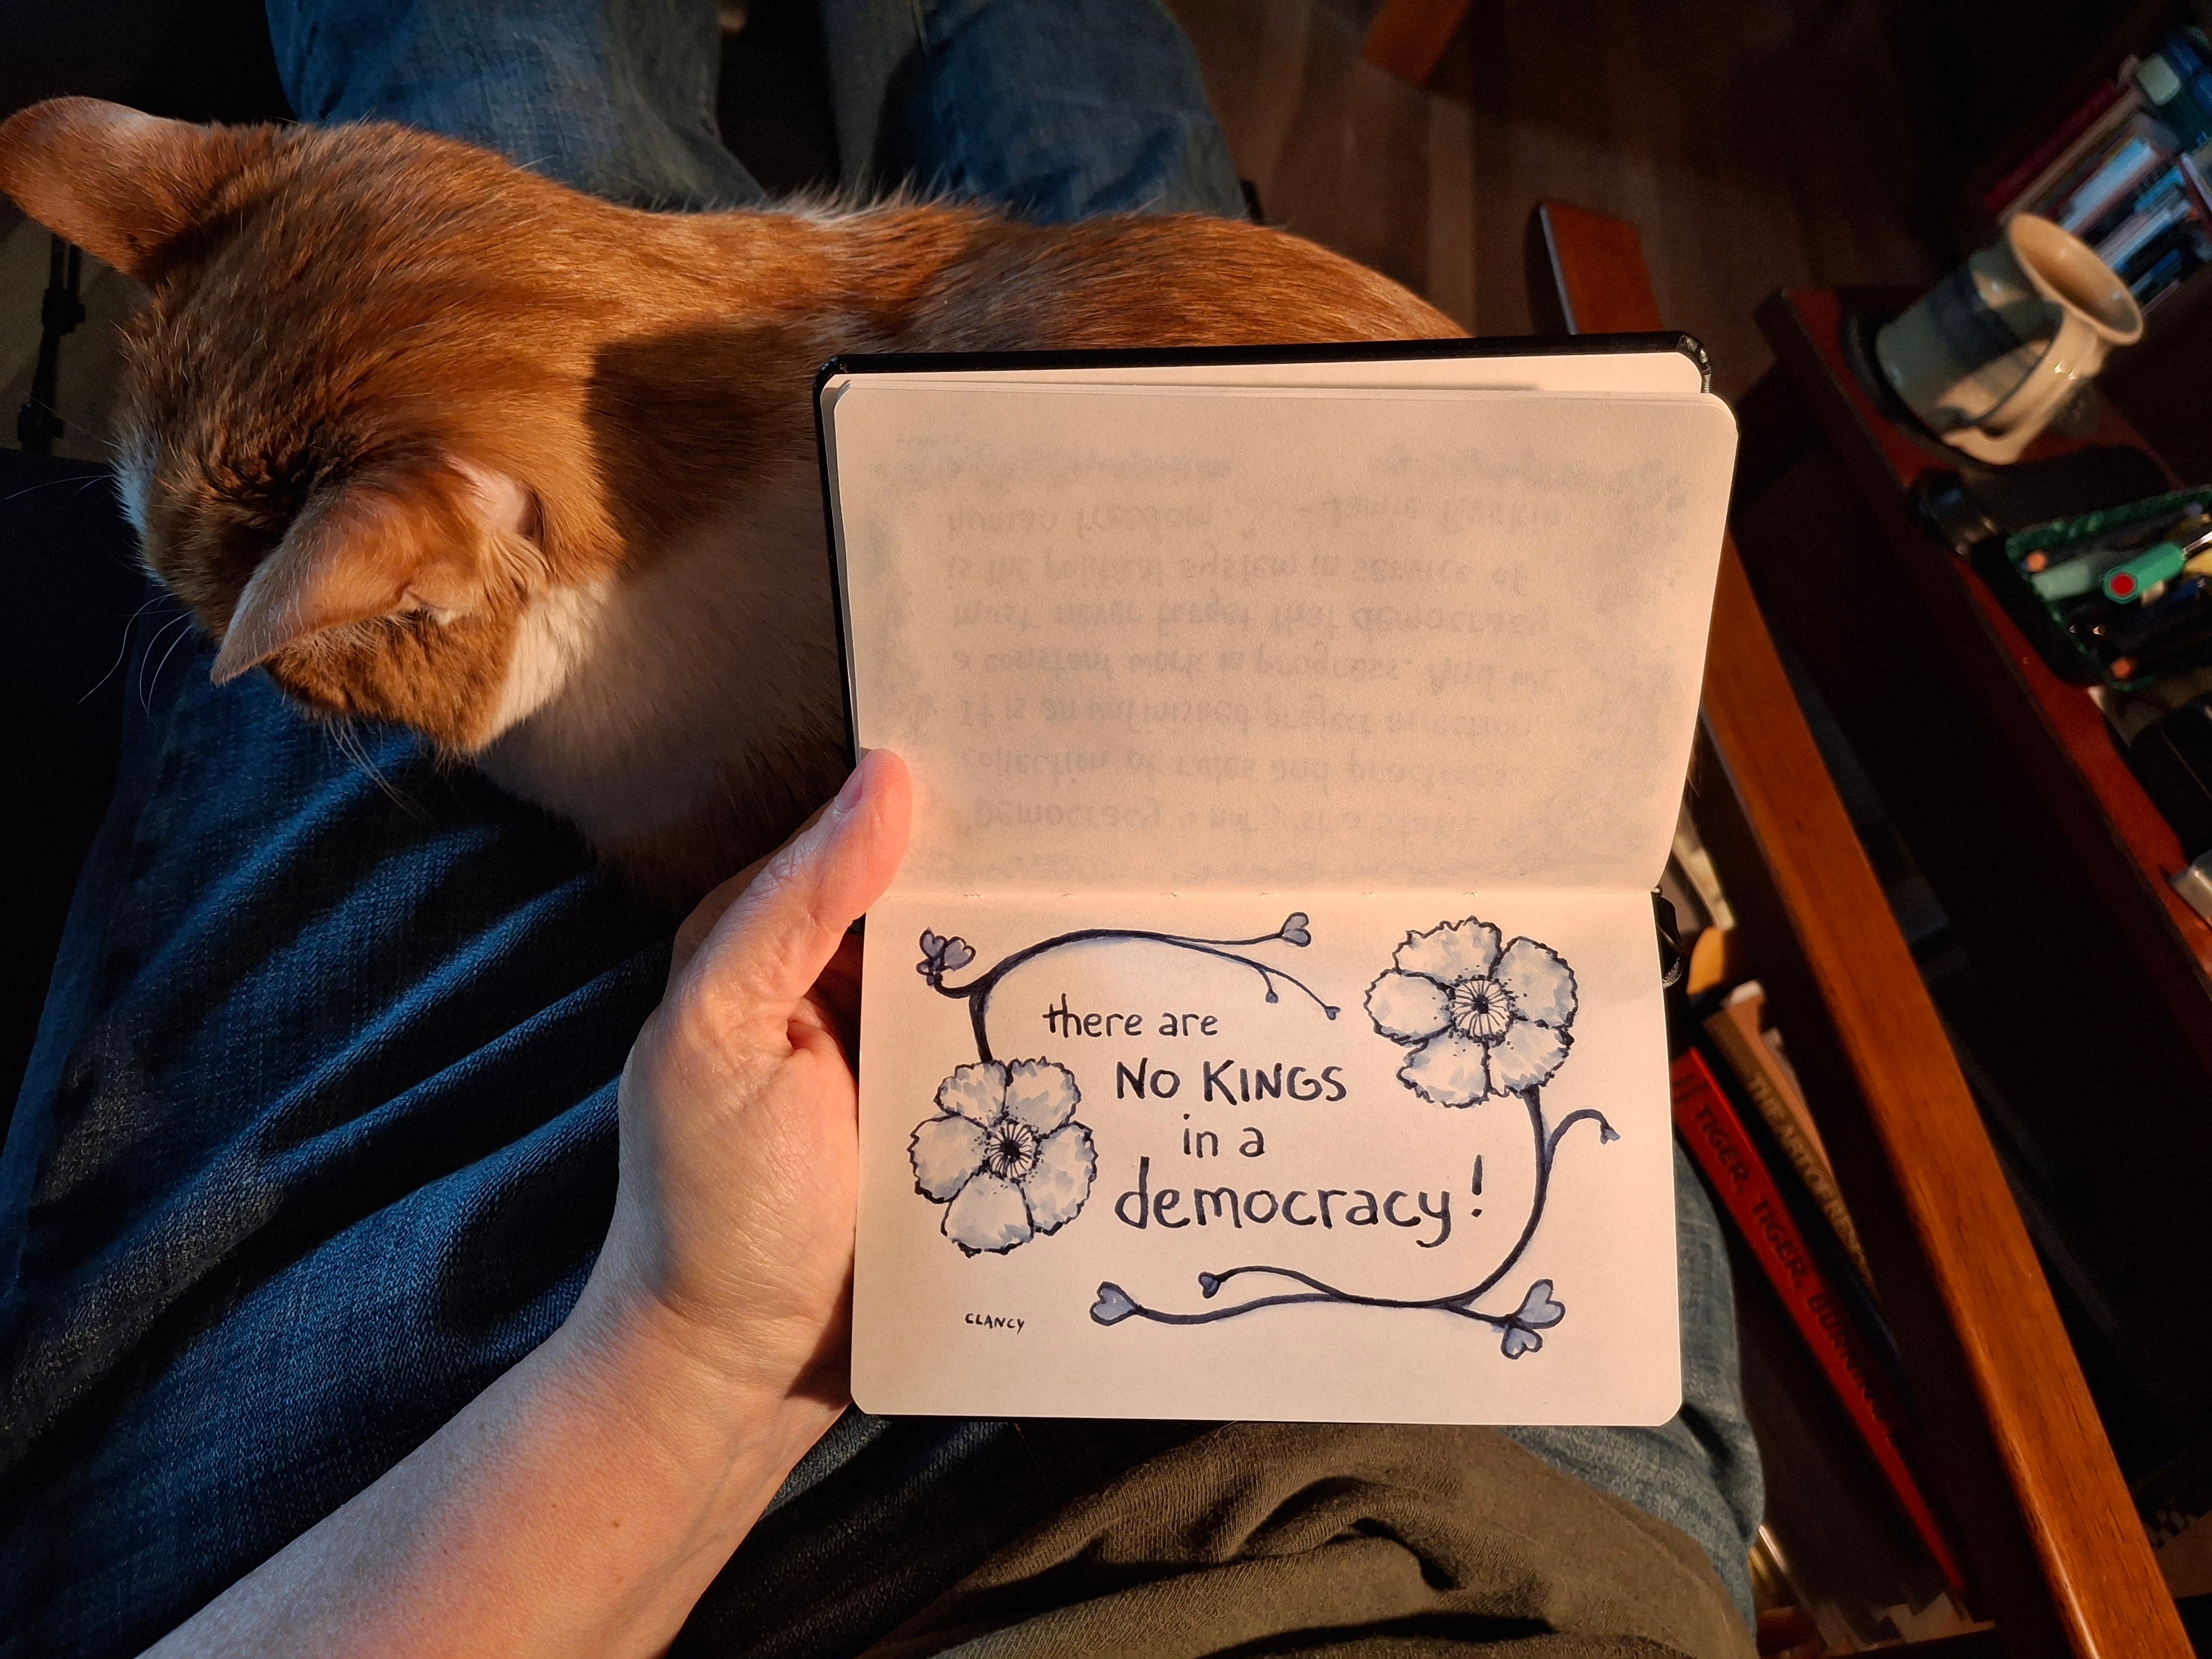 "Democracy is not just a static
collection of rules and practices.
It is an unfinished project
a constant work in progress. And we
must never forget that democracy
is the political system in service of
human freedom." -Jamie Raskin
there are
NO KINGS
in a
democracy!
CLANCY
THE ART OF
TIGER, TIGER, BURNING